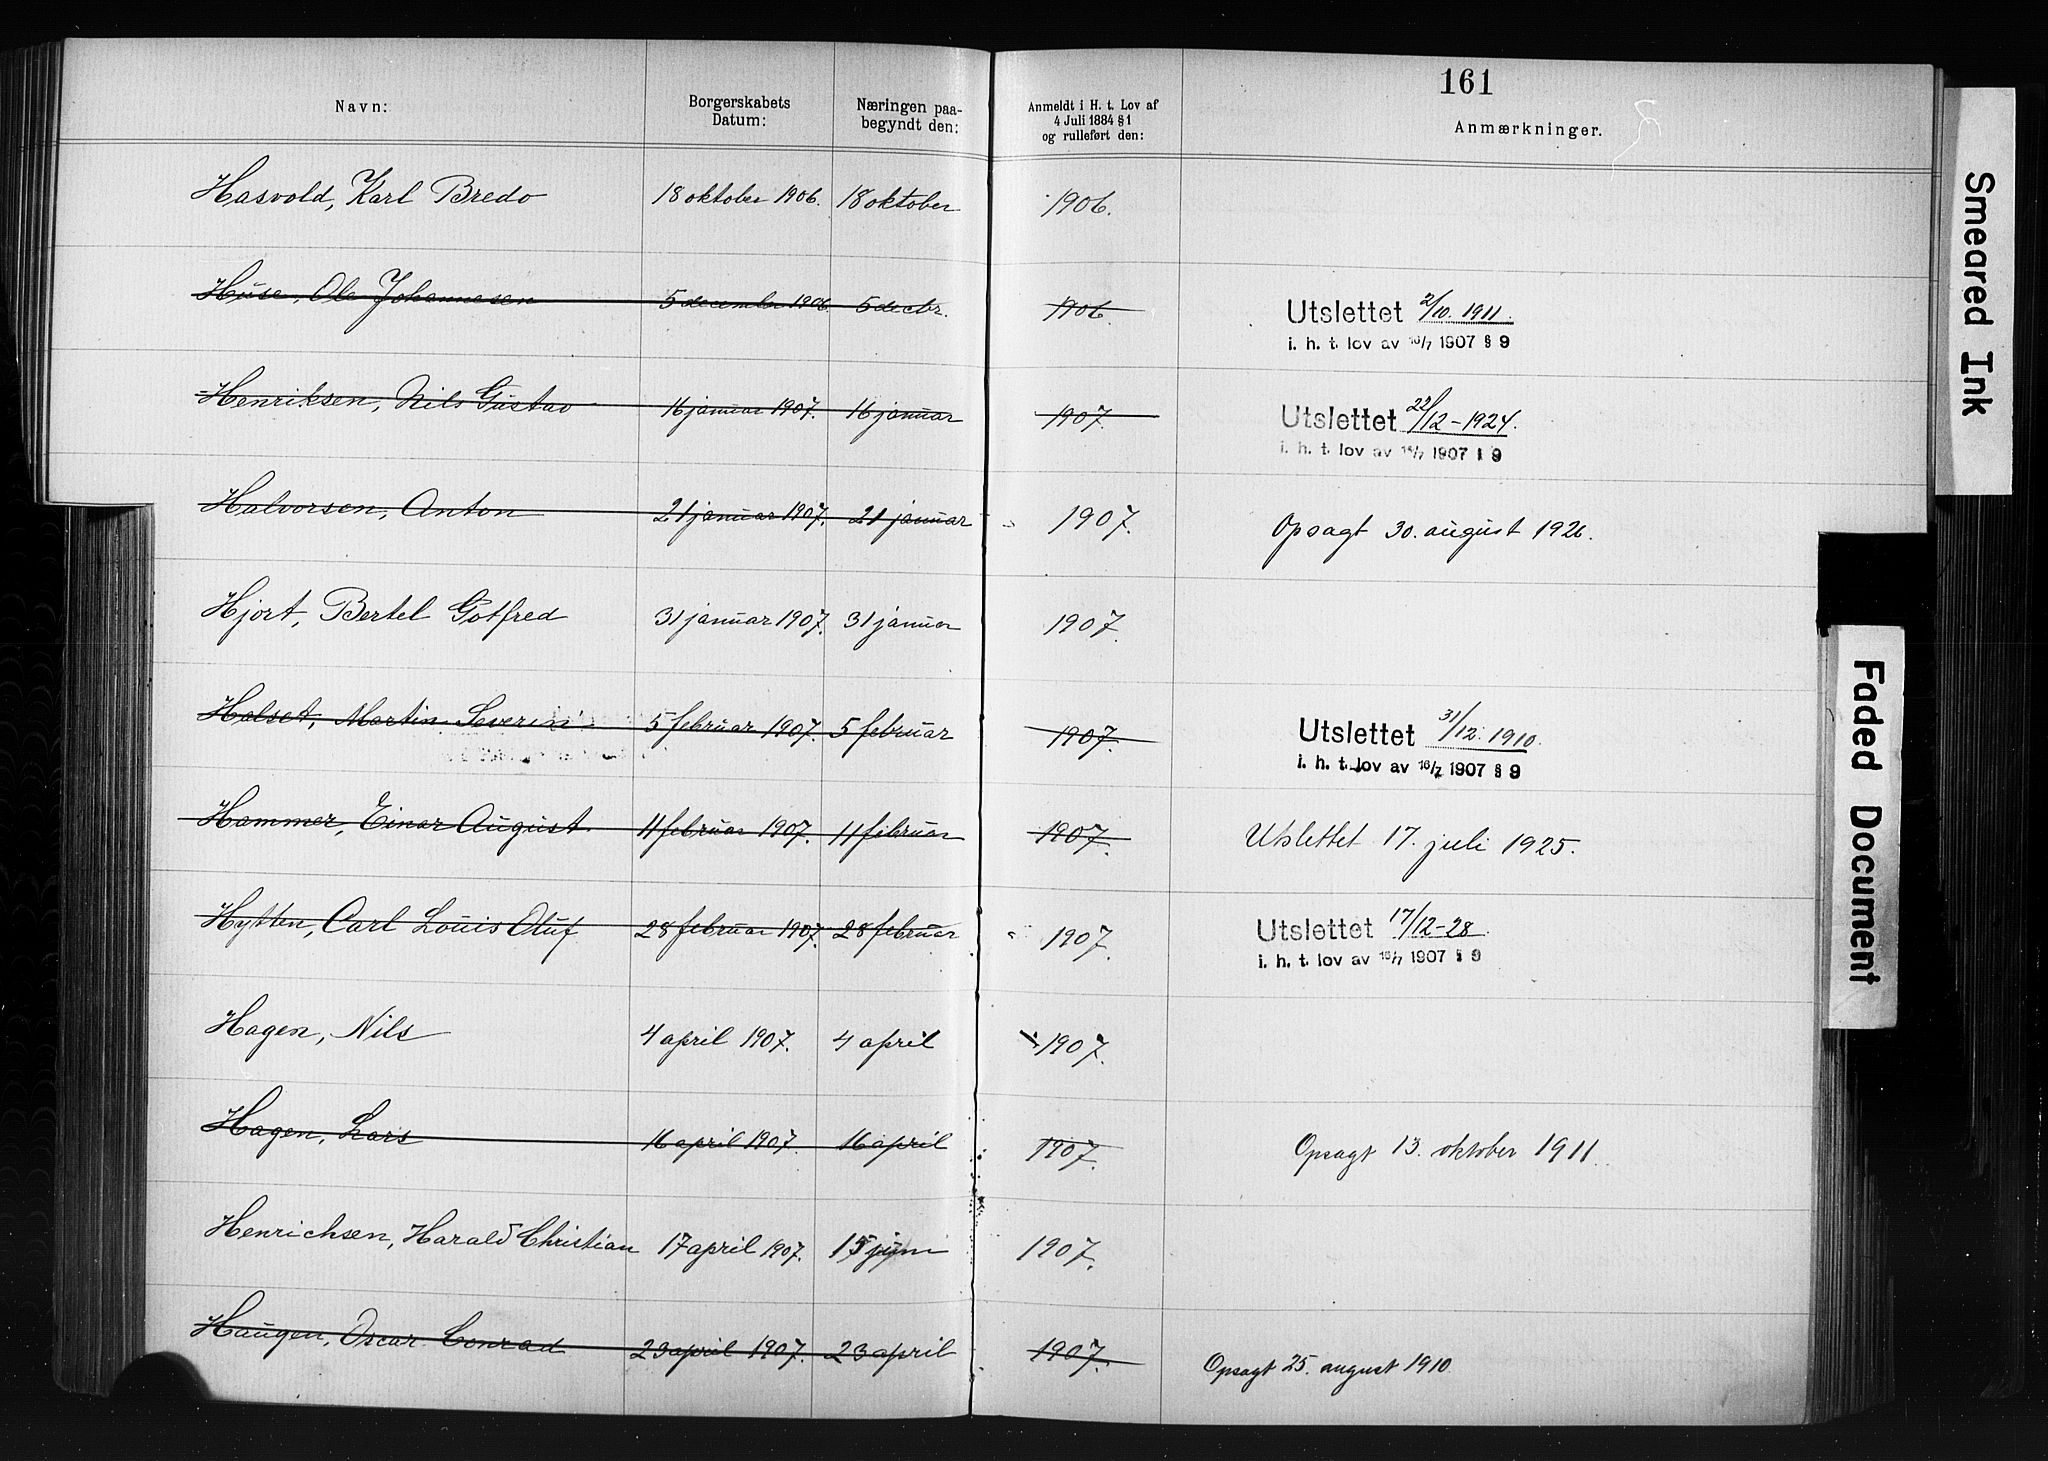 161
Navn:
Borgerskabets Datum:
Næringen paa-
begyndt den:
Anmeldt i H. t. Lov af
4 Juli 1884 § 1
og rulleført den:
Anmærkninger.
Hasvold, Karl Bredo 18 oktober 1906. 18 oktober 1906.
Huse, Ole Johannesen 5 december 1906. 5 decbr. 1906.
Utslettet 2/10. 1911.
i. h. t. lov av 16/7 1907 § 9
Henriksen, Nils Gustav 16 januar 1907. 16 januar 1907.
Utslettet 22/12 - 1924.
i. h. t. lov av 16/7 1907 § 9
Halvorsen, Anton 21 januar 1907. 21 januar 1907. Opsagt 30. august 1926.
Hjort, Bertel Gotfred 31 januar 1907. 31 januar 1907.
Halset, Martin Severin 5 februar 1907. 5 februar 1907.
Utslettet 31/12. 1910.
i. h. t. lov av 16/7 1907 § 9
Hammer, Einar August 11 februar 1907. 11 februar 1907. Utslettet 17. juli 1925.
Hytten, Carl Louis Oluf 28 februar 1907. 28 februar 1907.
Utslettet 17/12-28
i. h. t. lov av 16/7 1907 § 9
Hagen, Nils 4 april 1907. 4 april 1907.
Hagen, Lars 16 april 1907. 16 april 1907. Opsagt 13. oktober 1911.
Henrichsen, Harald Christian 17 april 1907. 15 juni 1907.
Haugen, Oscar Conrad 23 april 1907. 23 april 1907. Opsagt 25. august 1910.
Smeared Ink
Faded Document